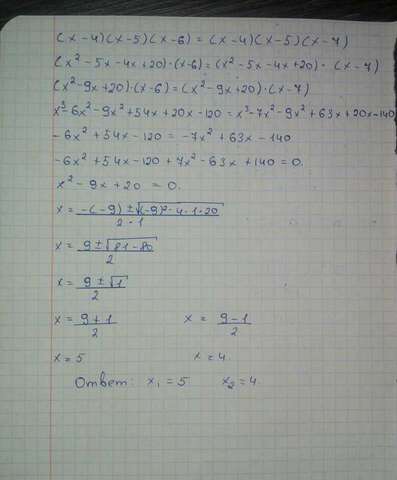 (x-4)(x-5)(x-6) = (x-4)(x-5)(x-7)
(x²-5x-4x+20)·(x-6)=(x²-5x-4x+20)·(x-7)
(x²-9x+20)·(x-6)=(x²-9x+20)·(x-7)
x³-6x²-9x²+54x+20x-120=x³-7x²-9x²+63x+20x-140
-6x²+54x-120=-7x²+63x-140
-6x²+54x-120+7x²-63x+140=0.
x²-9x+20=0.
x= -(-9)±√(-9)²-4·1·20 / 2·1
x= 9±√81-80 / 2
x= 9±√1 / 2
x= 9+1 / 2 x= 9-1 / 2
x=5 x=4.
Ответ: x₁=5 x₂=4.